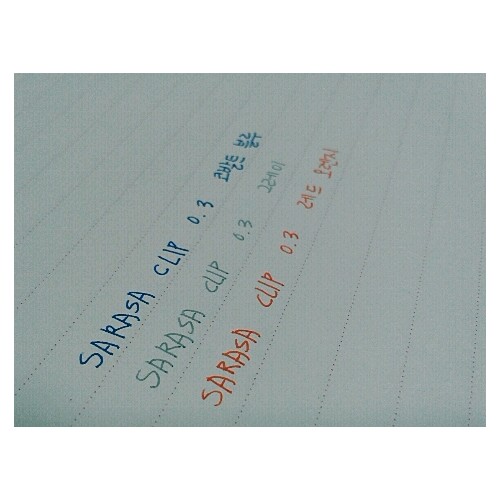 SARASA CLIP 0.3 코발트 블루
SARASA CLIP 0.3 그레이
SARASA CLIP 0.3 레드 오렌지